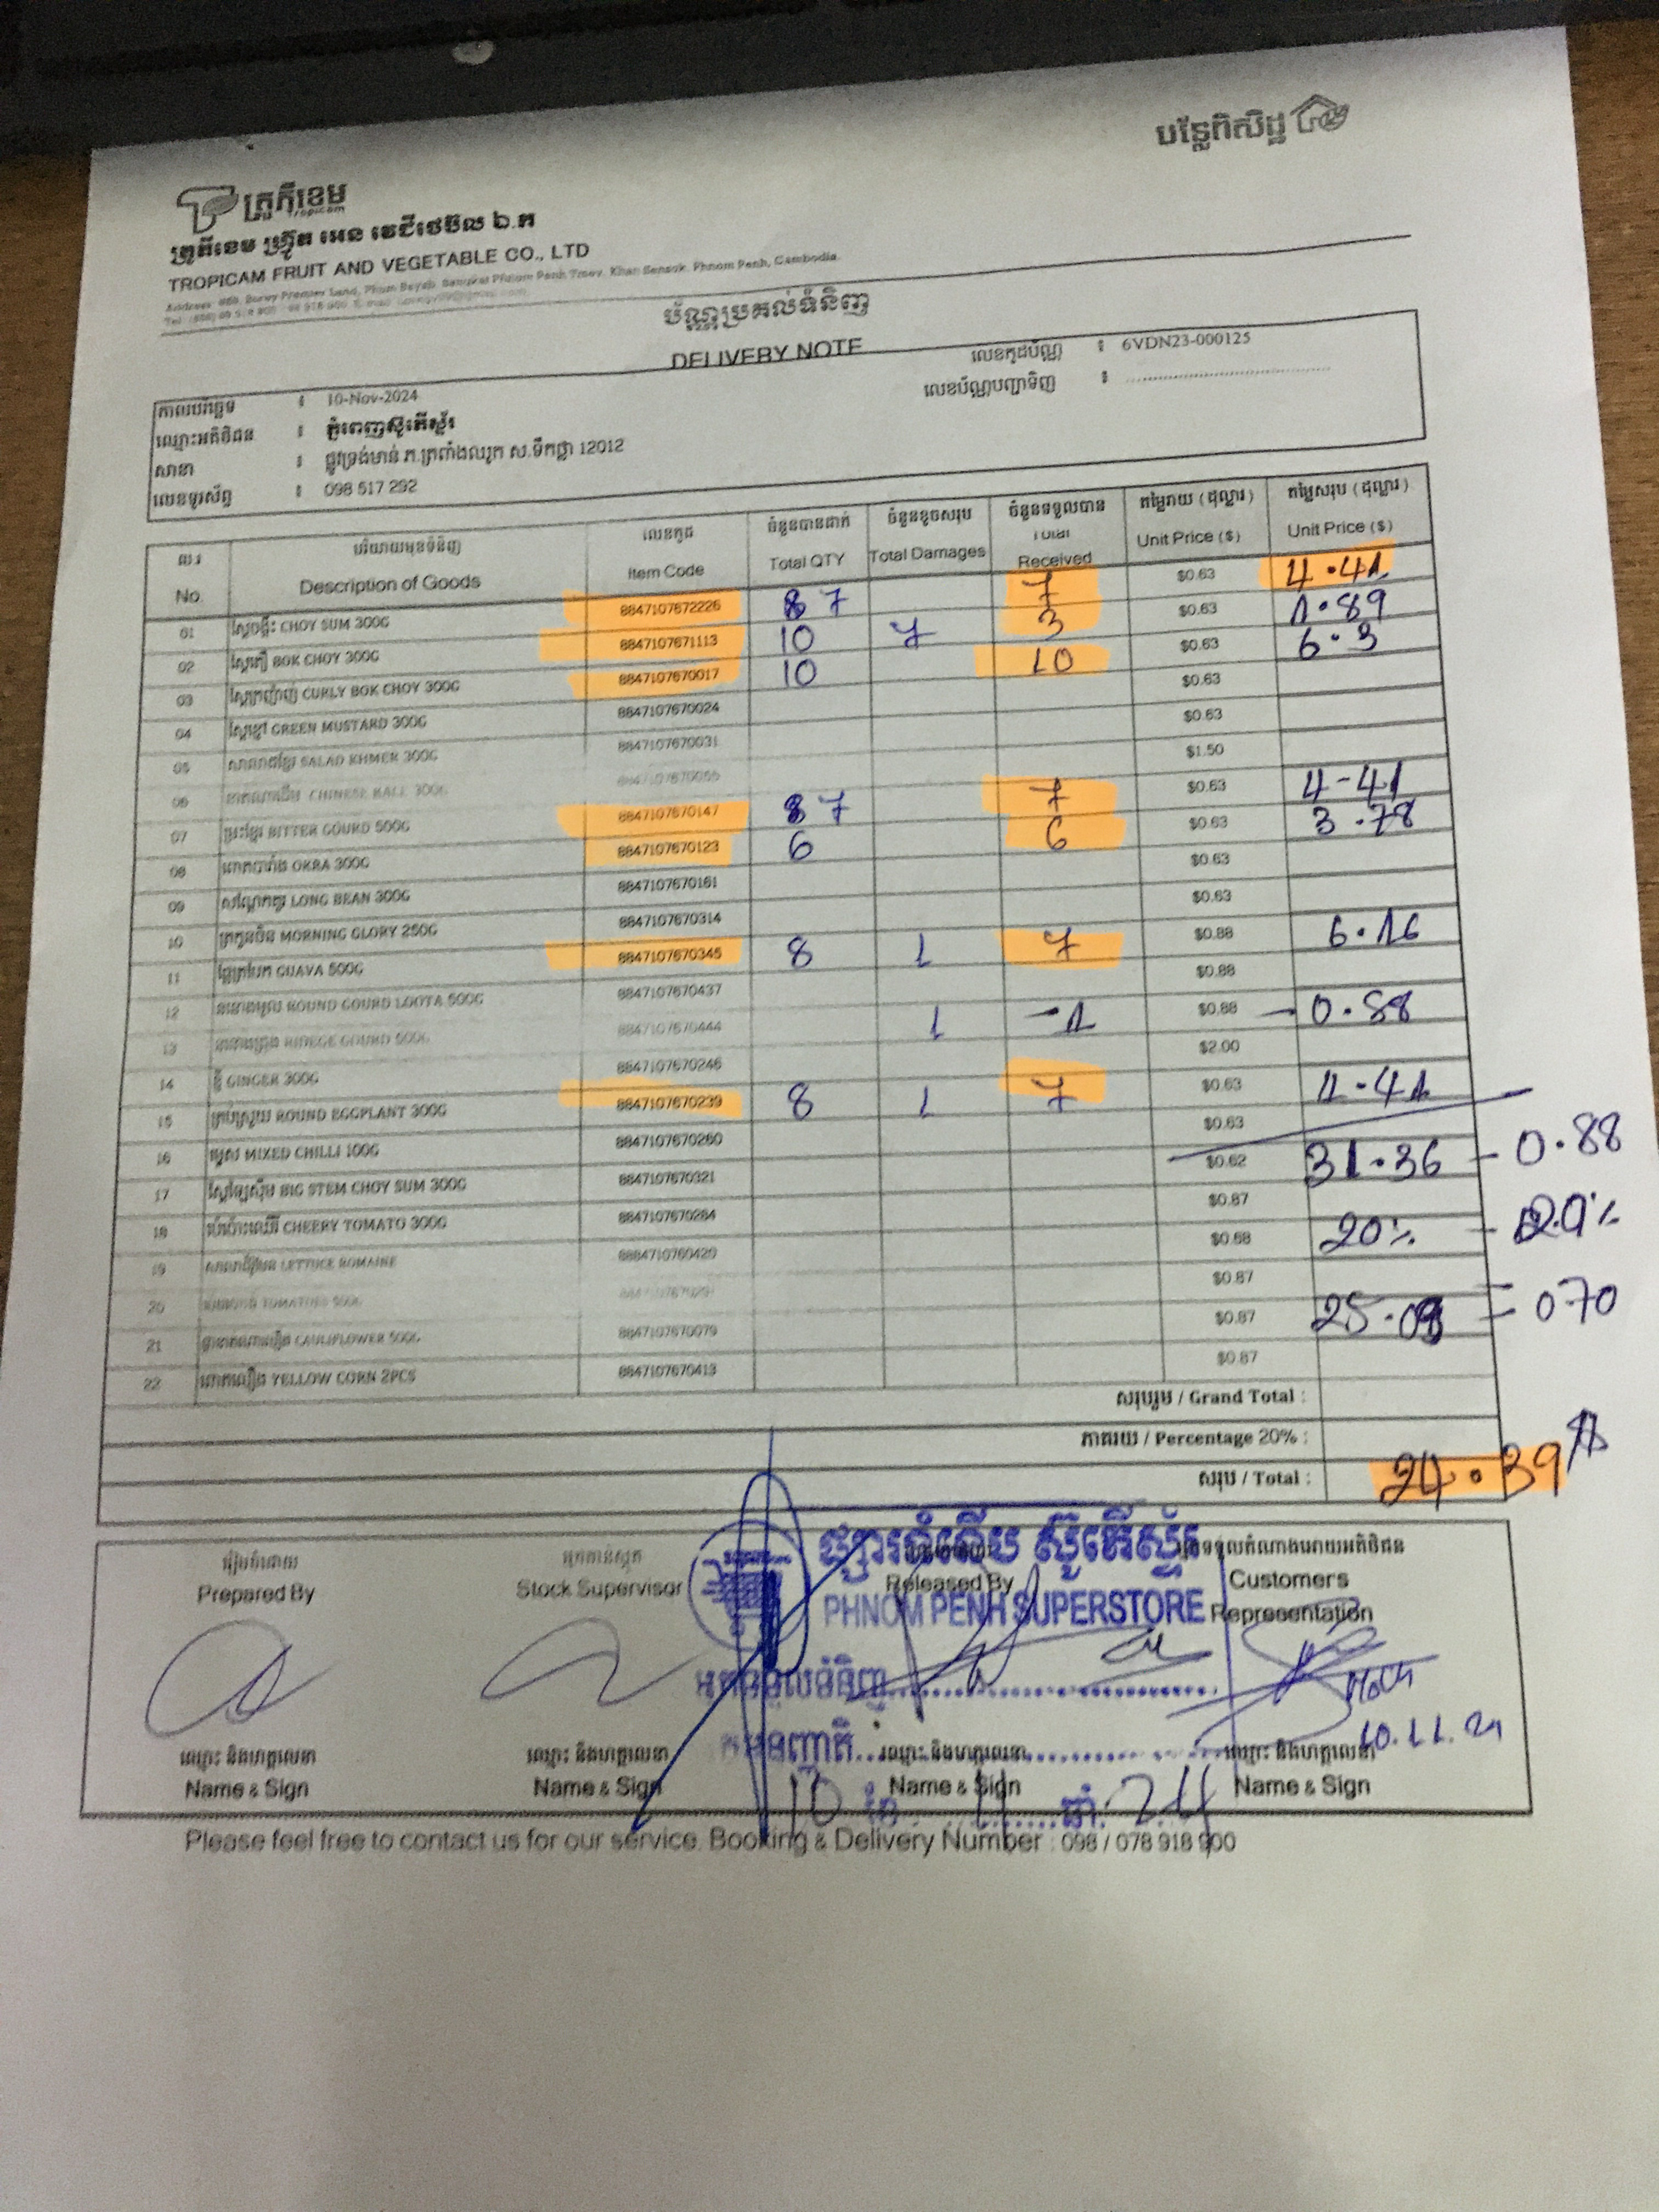 បន្លែពិសិដ្ឋ
ត្រូពីខេម
Tropicam
ត្រូពីខេម ហ្វ្រ៊ូត អេន វេជីថេប៊ល ឯ.ក
TROPICAM FRUIT AND VEGETABLE CO., LTD
Phnom Penh Tmey, Khan Sensok, Phnom Penh, Cambodia.
ប័ណ្ណប្រគល់ទំនិញ
DELIVERY NOTE
លេខកូដប័ណ្ណ : 6VDN23-000125
លេខប័ណ្ណបញ្ជាទិញ :
កាលបរិច្ឆេទ : 10-Nov-2024
ឈ្មោះអតិថិជន : ភ្នំពេញស៊ូភើស្ត័រ
: ផ្លូវទ្រង់មាន់ ភ.ត្រពាំងឈូក ស.ទឹកថ្លា 12012
លេខទូរស័ព្ទ : 098 517 292
ល.រ បរិយាយមុខទំនិញ លេខកូដ ចំនួនបានដាក់ ចំនួនខូចសរុប ចំនួនទទួលបាន តម្លៃរាយ (ដុល្លារ) តម្លៃសរុប (ដុល្លារ)
No. Description of Goods Item Code Total QTY Total Damages Total Received Unit Price ($) Unit Price ($)
01 ស្ពៃចង្កឹះ CHOY SUM 300G 8847107672226 7 7 $0.63 4.41
02 ស្ពៃតឿ BOK CHOY 300G 8847107671113 10 7 3 $0.63 1.89
03 ស្ពៃក្រញ៉ាញ់ CURLY BOK CHOY 300G 8847107670017 10 10 $0.63 6.3
04 ស្ពៃខ្មៅ GREEN MUSTARD 300G 8847107670024 $0.63
05 សាលាដខ្មែរ SALAD KHMER 300G 8847107670031 $0.63
06 CHINESE KALE 300G $1.50
07 ម្រះខ្មែរ BITTER GOURD 500G 8847107670147 7 7 $0.63 4-41
08 ពោតបារាំង OKRA 300G 8847107670123 6 6 $0.63 3.78
09 សណ្ដែកគួរ LONG BEAN 300G 8847107670161 $0.63
10 ត្រកួនចិន MORNING GLORY 250G 8847107670314 $0.63
11 ផ្លែត្របែក GUAVA 500G 8847107670345 8 1 7 $0.88 6.16
12 ននោងមូល ROUND GOURD LOOTA 500G 8847107670437 $0.88
13 ននោងជ្រុង RIDEGE GOURD 500G 8847107670444 1 -1 $0.88 - 0.88
14 ខ្ញី GINGER 300G 8847107670246 $2.00
15 ត្រប់ស្រួយ ROUND EGGPLANT 300G 8847107670239 8 1 7 $0.63 4.41
16 ម្ទេស MIXED CHILLI 100G 8847107670260 $0.63
17 BIG STEM CHOY SUM 300G 8847107670321 $0.62 31.36 - 0.88
18 ប៉េងប៉ោះឈើរី CHEERY TOMATO 300G 8847107670284 $0.87
19 LETTUCE ROMAINE 8884710760420 $0.68 20% - 20%
20 TOMATOES 500G $0.87
21 CAULIFLOWER 500G 8847107670079 $0.87 25.09 - 0.70
22 ពោតលឿង YELLOW CORN 2PCS 8847107670413 $0.87
សរុបរួម / Grand Total :
ភាគរយ / Percentage 20% :
សរុប / Total : 24.39$
រៀបចំដោយ អ្នកកាន់ស្តុក អ្នកទទួលតំណាងអោយអតិថិជន
Prepared By Stock Supervisor Released By Customers Representation
ផ្សារទំនើប ស៊ូភើស្ទ័រ
PHNOM PENH SUPERSTORE
អ្នកទទួលទំនិញ
10.11.24
ឈ្មោះ និងហត្ថលេខា ឈ្មោះ និងហត្ថលេខា ឈ្មោះ និងហត្ថលេខា ឈ្មោះ និងហត្ថលេខា
Name & Sign Name & Sign Name & Sign Name & Sign
10 ខែ 11 ឆ្នាំ 24
Please feel free to contact us for our service. Booking & Delivery Number : 098 / 078 918 900